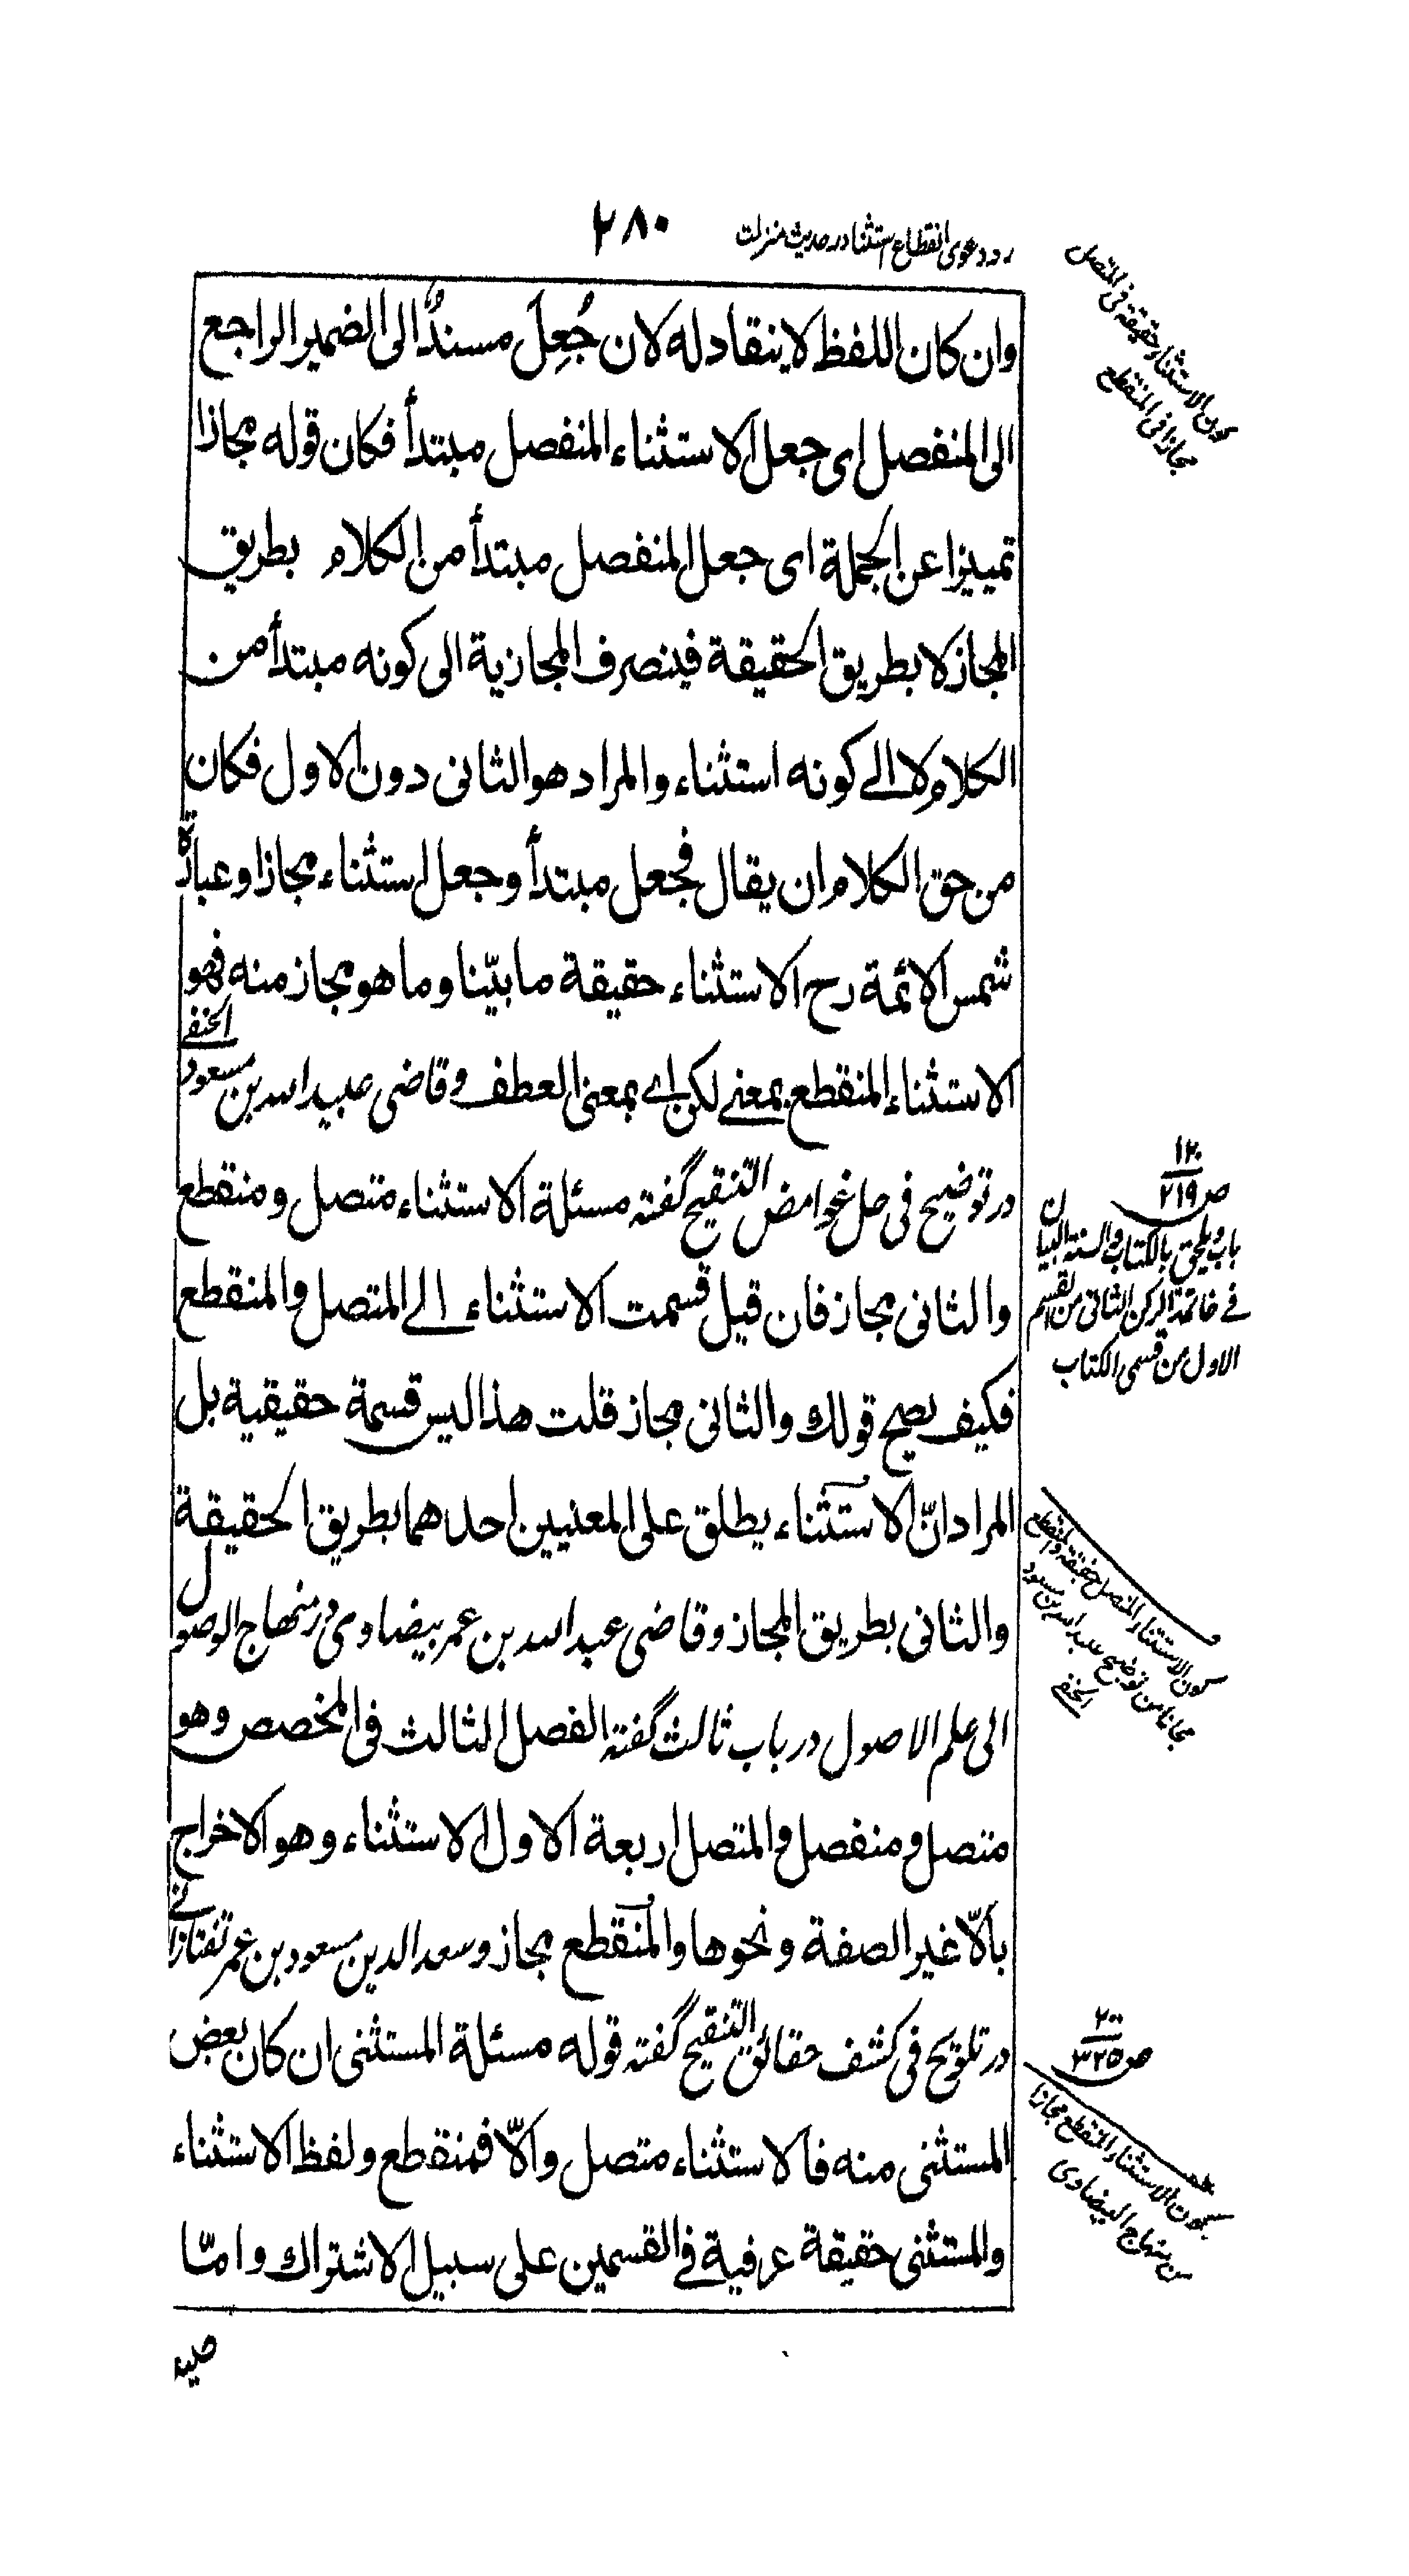 رد دعوی انقطاع استثنا در حدیث منزلت
۲۸۰
وان كان اللفظ لا ينقاد له لان جُعِلَ مسندٌ الى الضمير الراجع
الى المنفصل اى جعل الاستثناء المنفصل مبتدأ فكان قوله مجازا
تمييزا عن الجملة اى جعل المنفصل مبتدأ من الكلام بطريق
المجاز لا بطريق الحقيقة فينصرف المجازية الى كونه مبتدأ من
الكلام لا الے كونه استثناء والمراد هو الثانى دون الاول فكان
من حق الكلام ان يقال فجعل مبتدأ وجعل استثناء مجازا وعبارة
شمس الائمة رح الاستثناء حقيقة ما بيّنا وما هو مجاز منه فهو
الاستثناء المنقطع بمعنے لكن اے بمعنى العطف و قاضى عبيد الله بن مسعود الحنفے
در توضيح فى حل غوامض التنقيح گفته مسئلة الاستثناء متصل ومنقطع
والثانى مجاز فان قيل قسمت الاستثناء الے المتصل والمنقطع
فكيف يصح قولك والثانى مجاز قلت هذا ليس قسمة حقيقية بل
المراد انّ الاستثناء يطلق على المعنيين احدهما بطريق الحقيقة
والثانى بطريق المجاز وقاضى عبد الله بن عمر بيضاوى در منهاج الوصول
الى علم الاصول در باب ثالث گفته الفصل الثالث فى المخصص وهو
متصل ومنفصل والمتصل اربعة الاول الاستثناء وهو الاخراج
بالاّ غير الصفة ونحوها والمنقطع مجاز وسعد الدين مسعود بن عمر تفتازانے
در تلويح فى كشف حقائق التنقيح گفته قوله مسئلة المستثنى ان كان بعض
المستثنى منه فالاستثناء متصل والاّ فمنقطع ولفظ الاستثناء
والمستثنى حقيقة عرفية فے القسمين على سبيل الاشتراك وامّا
صيغه
كون الاستثناء حقيقة فى المتصل
مجازا فى المنقطع
۱۲۰
ص ۲۱۹
باب ويلحق بالكتاب والسنة البيان
فے خاتمة الركن الثانى من القسم
الاول من قسمى الكتاب
كون الاستثناء المتصل حقيقة والمنقطع
مجازا من توضيح عبيد الله بن مسعود
الحنفے
۲۰۰
ص ۳۲۵
كون الاستثناء المنقطع مجازا
من منهاج البيضاوى